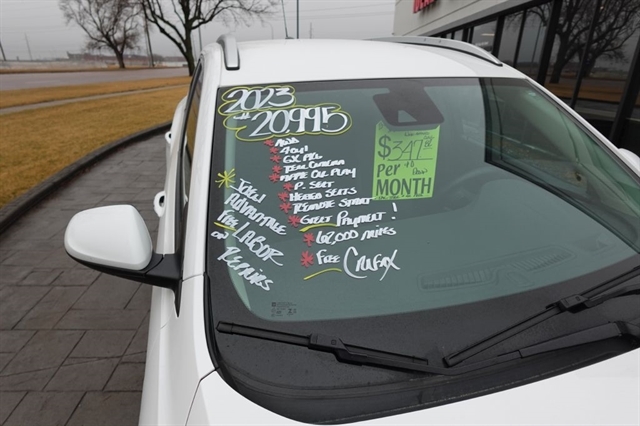 2023
$20,995
* AWD
* 4Cyl
* Apple Car Play
* P. Seat
* Heated Seats
* Remote Start
* Great Payment!
* 68,000 Miles
* Free Carfax
Advantage
Free Labor
on Repairs
$347
per
MONTH